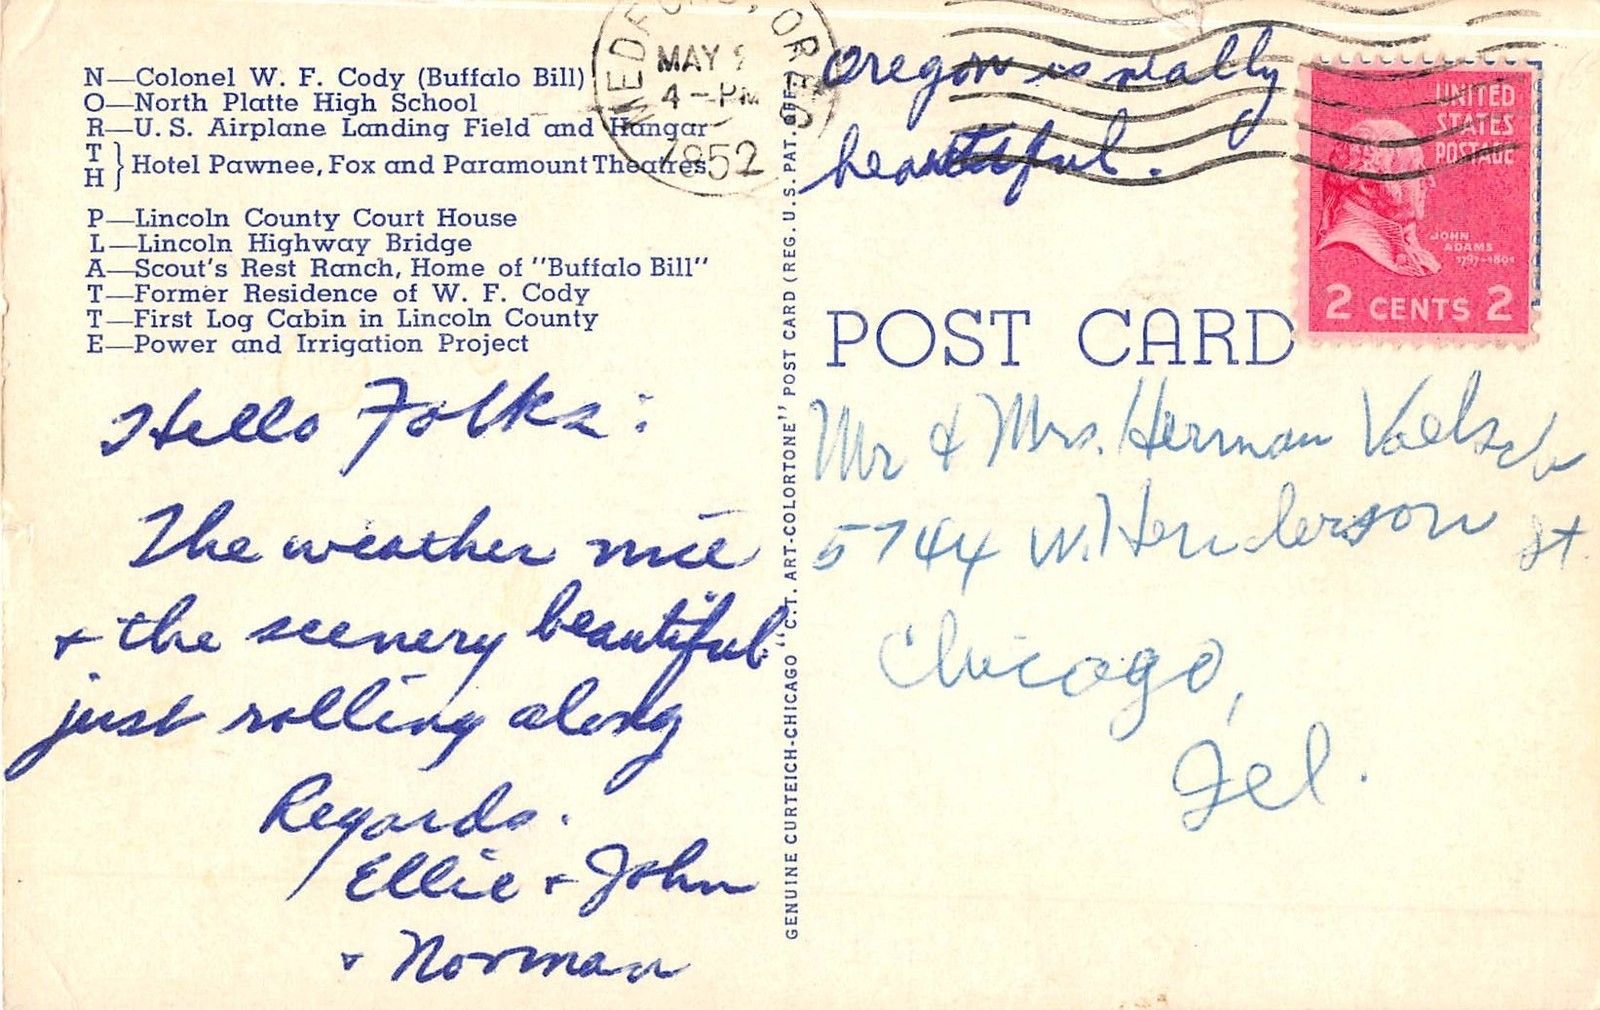 N—Colonel W. F. Cody (Buffalo Bill)
O—North Platte High School
R—U. S. Airplane Landing Field and Hangar
T
H } Hotel Pawnee, Fox and Paramount Theatres
P—Lincoln County Court House
L—Lincoln Highway Bridge
A—Scout's Rest Ranch, Home of "Buffalo Bill"
T—Former Residence of W. F. Cody
T—First Log Cabin in Lincoln County
E—Power and Irrigation Project
Hello Folks:
The weather nice
+ the scenery beautiful
just rolling along
Regards.
Ellie + John
+ Norman
MEDFORD, OREG.
MAY
4-PM
1952
GENUINE CURTEICH-CHICAGO "C.T. ART-COLORTONE" POST CARD (REG. U.S. PAT. OFF.)
Oregon is really
beautiful.
UNITED
STATES
POSTAGE
JOHN
ADAMS
1797-1801
2 CENTS 2
POST CARD
Mr & Mrs. Herman Voelsch
5744 W. Henderson St.
Chicago,
Ill.